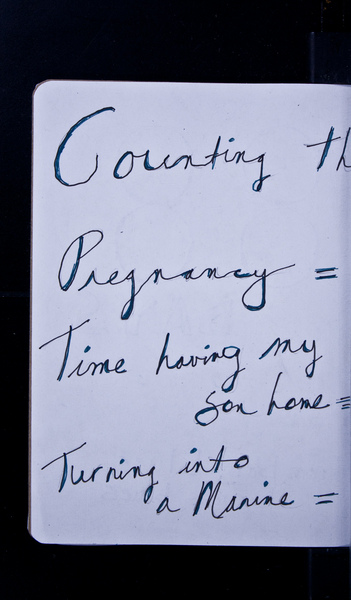 Counting th
Pregnancy =
Time having my
son home =
Turning into
a Marine =